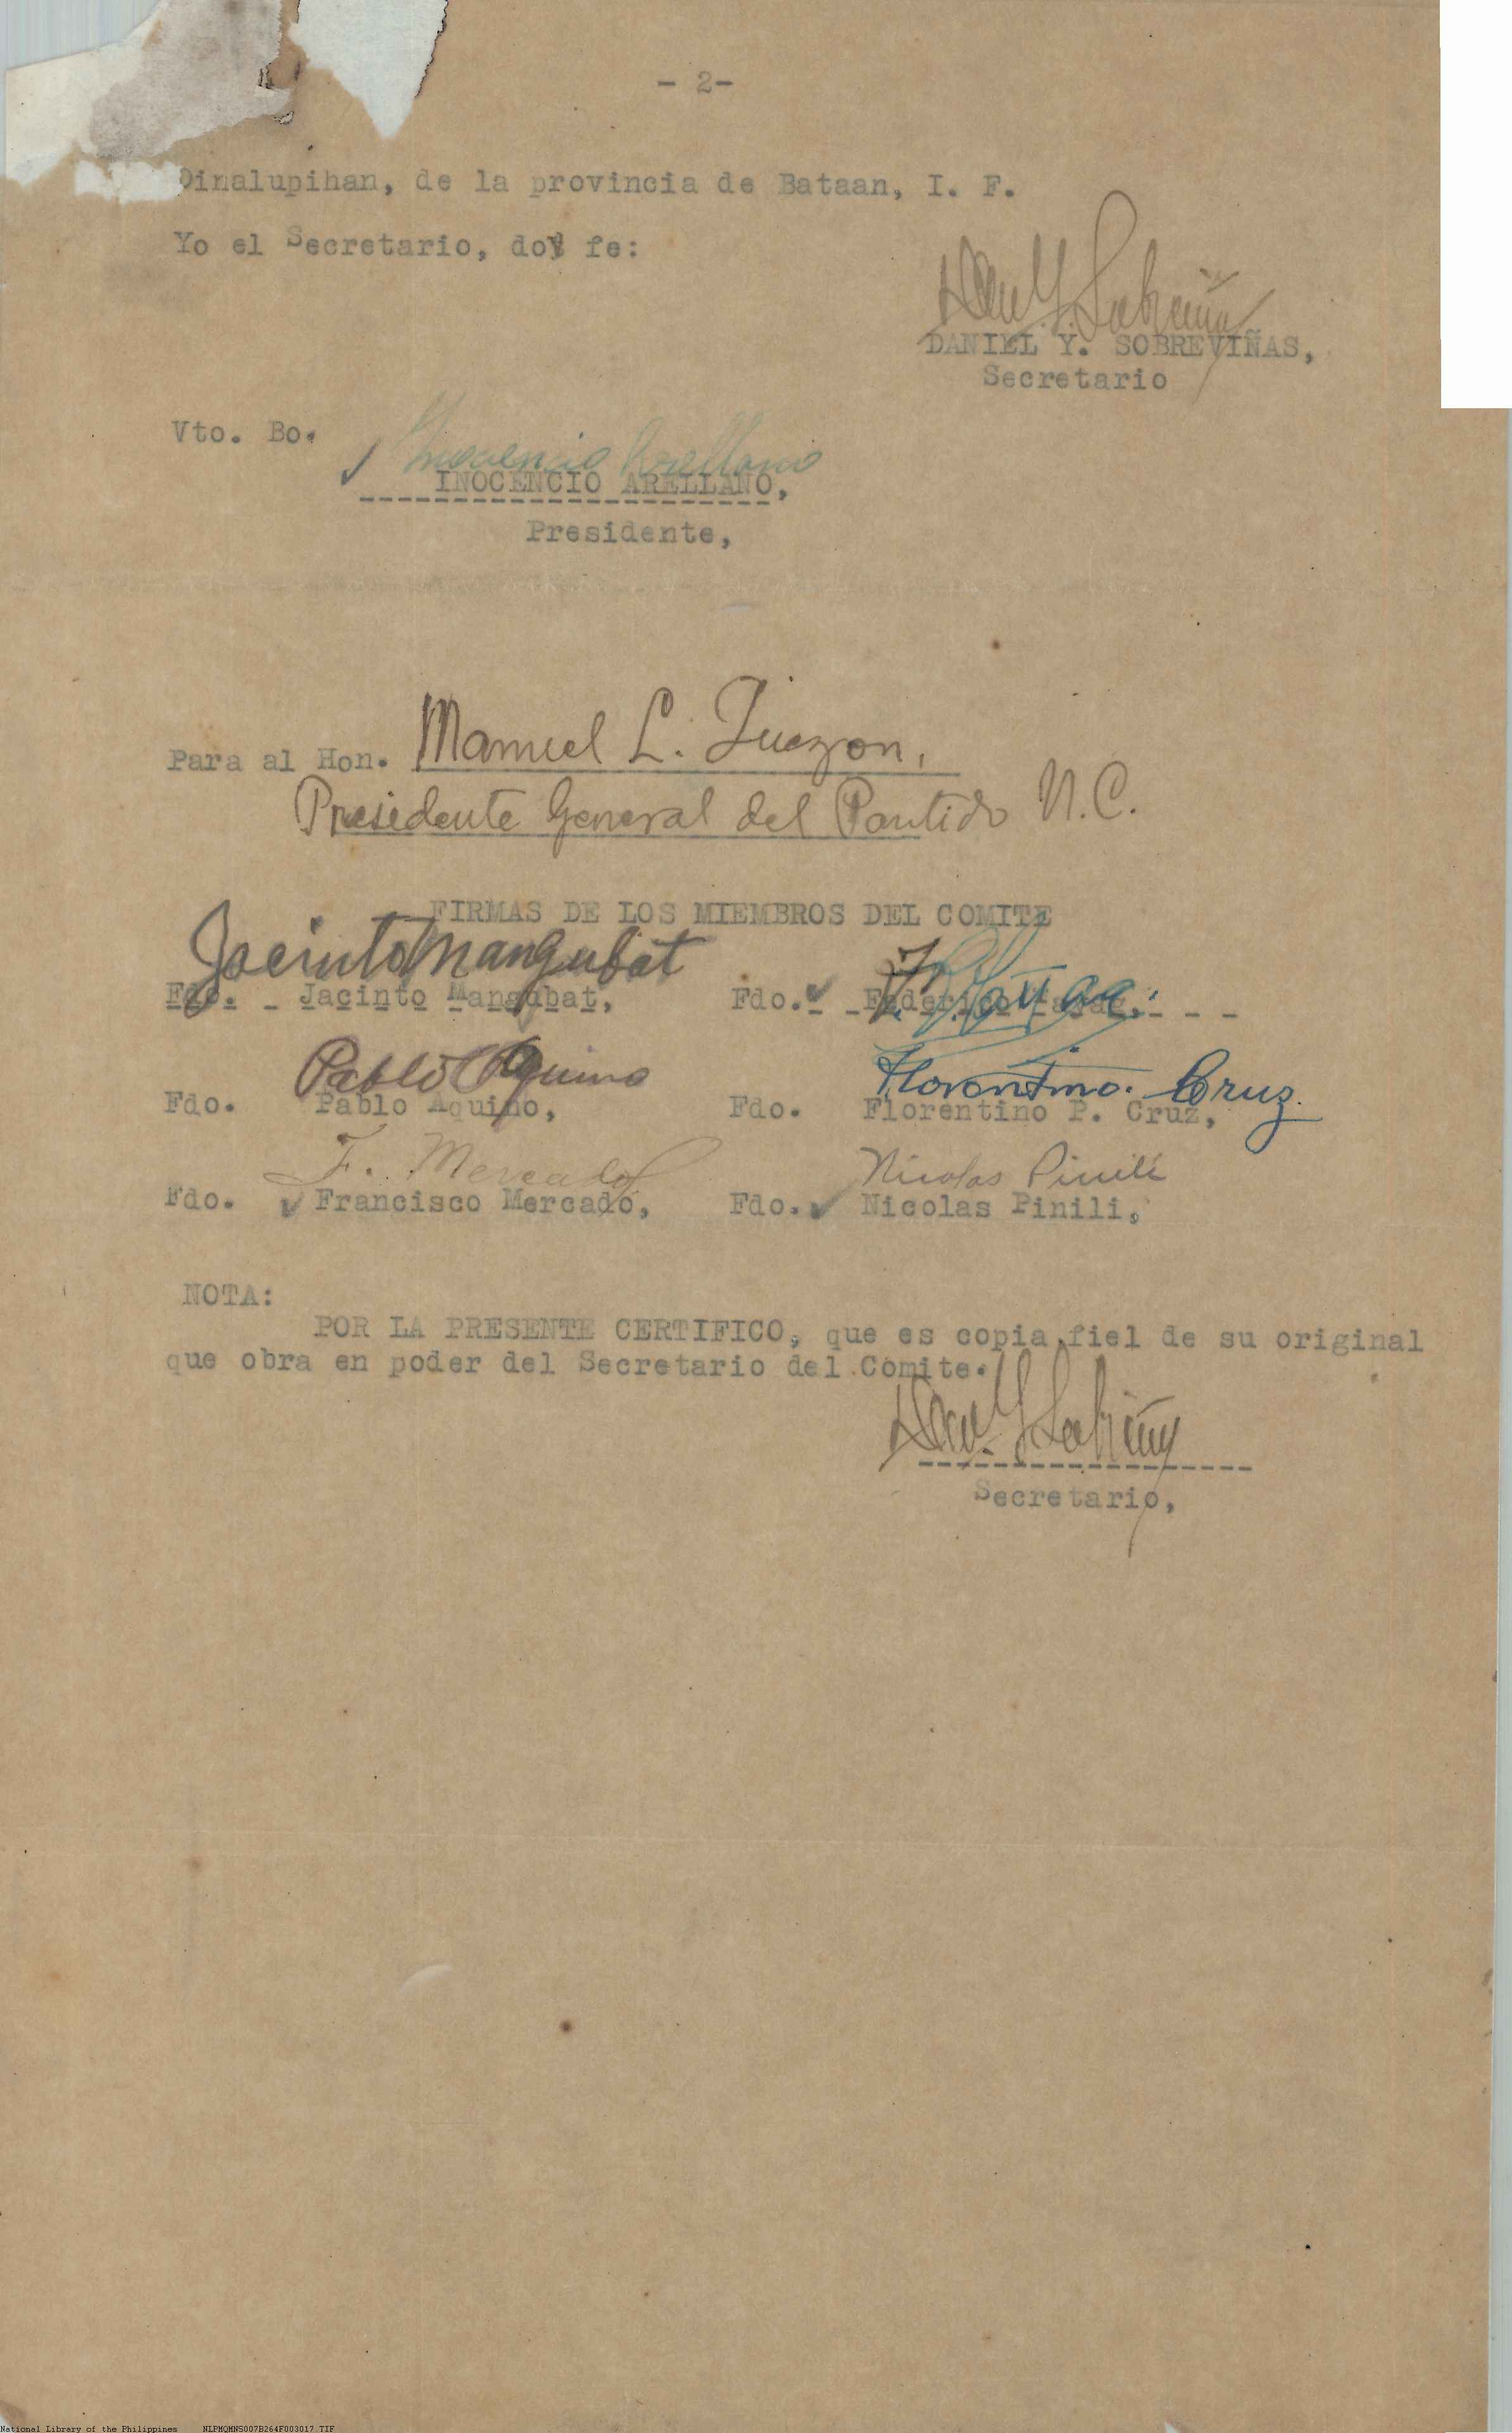 - 2-
Dinalupihan, de la provincia de Bataan, I. F.
Yo el Secretario, doy fe:
DANIEL Y. SOBREVIÑAS,
Secretario
Vto. Bo.
Inocencio Arellano
INOCENCIO ARELLANO,
Presidente,
Para al Hon. Manuel L. Quezon,
Presidente General del Partido N.C.
FIRMAS DE LOS MIEMBROS DEL COMITE
Jacinto Mangubat
Fdo. - Jacinto Mangubat, Fdo. - Federico
Pablo Aquino Florentino. Cruz.
Fdo. Pablo Aquino, Fdo. Florentino P. Cruz,
F. Mercado Nicolas Pinili
Fdo. Francisco Mercado, Fdo. Nicolas Pinili,
NOTA:
POR LA PRESENTE CERTIFICO, que es copia fiel de su original
que obra en poder del Secretario del Comite.
Secretario,
National Library of the Philippines NLPMQMNS007B264F003017.TIF